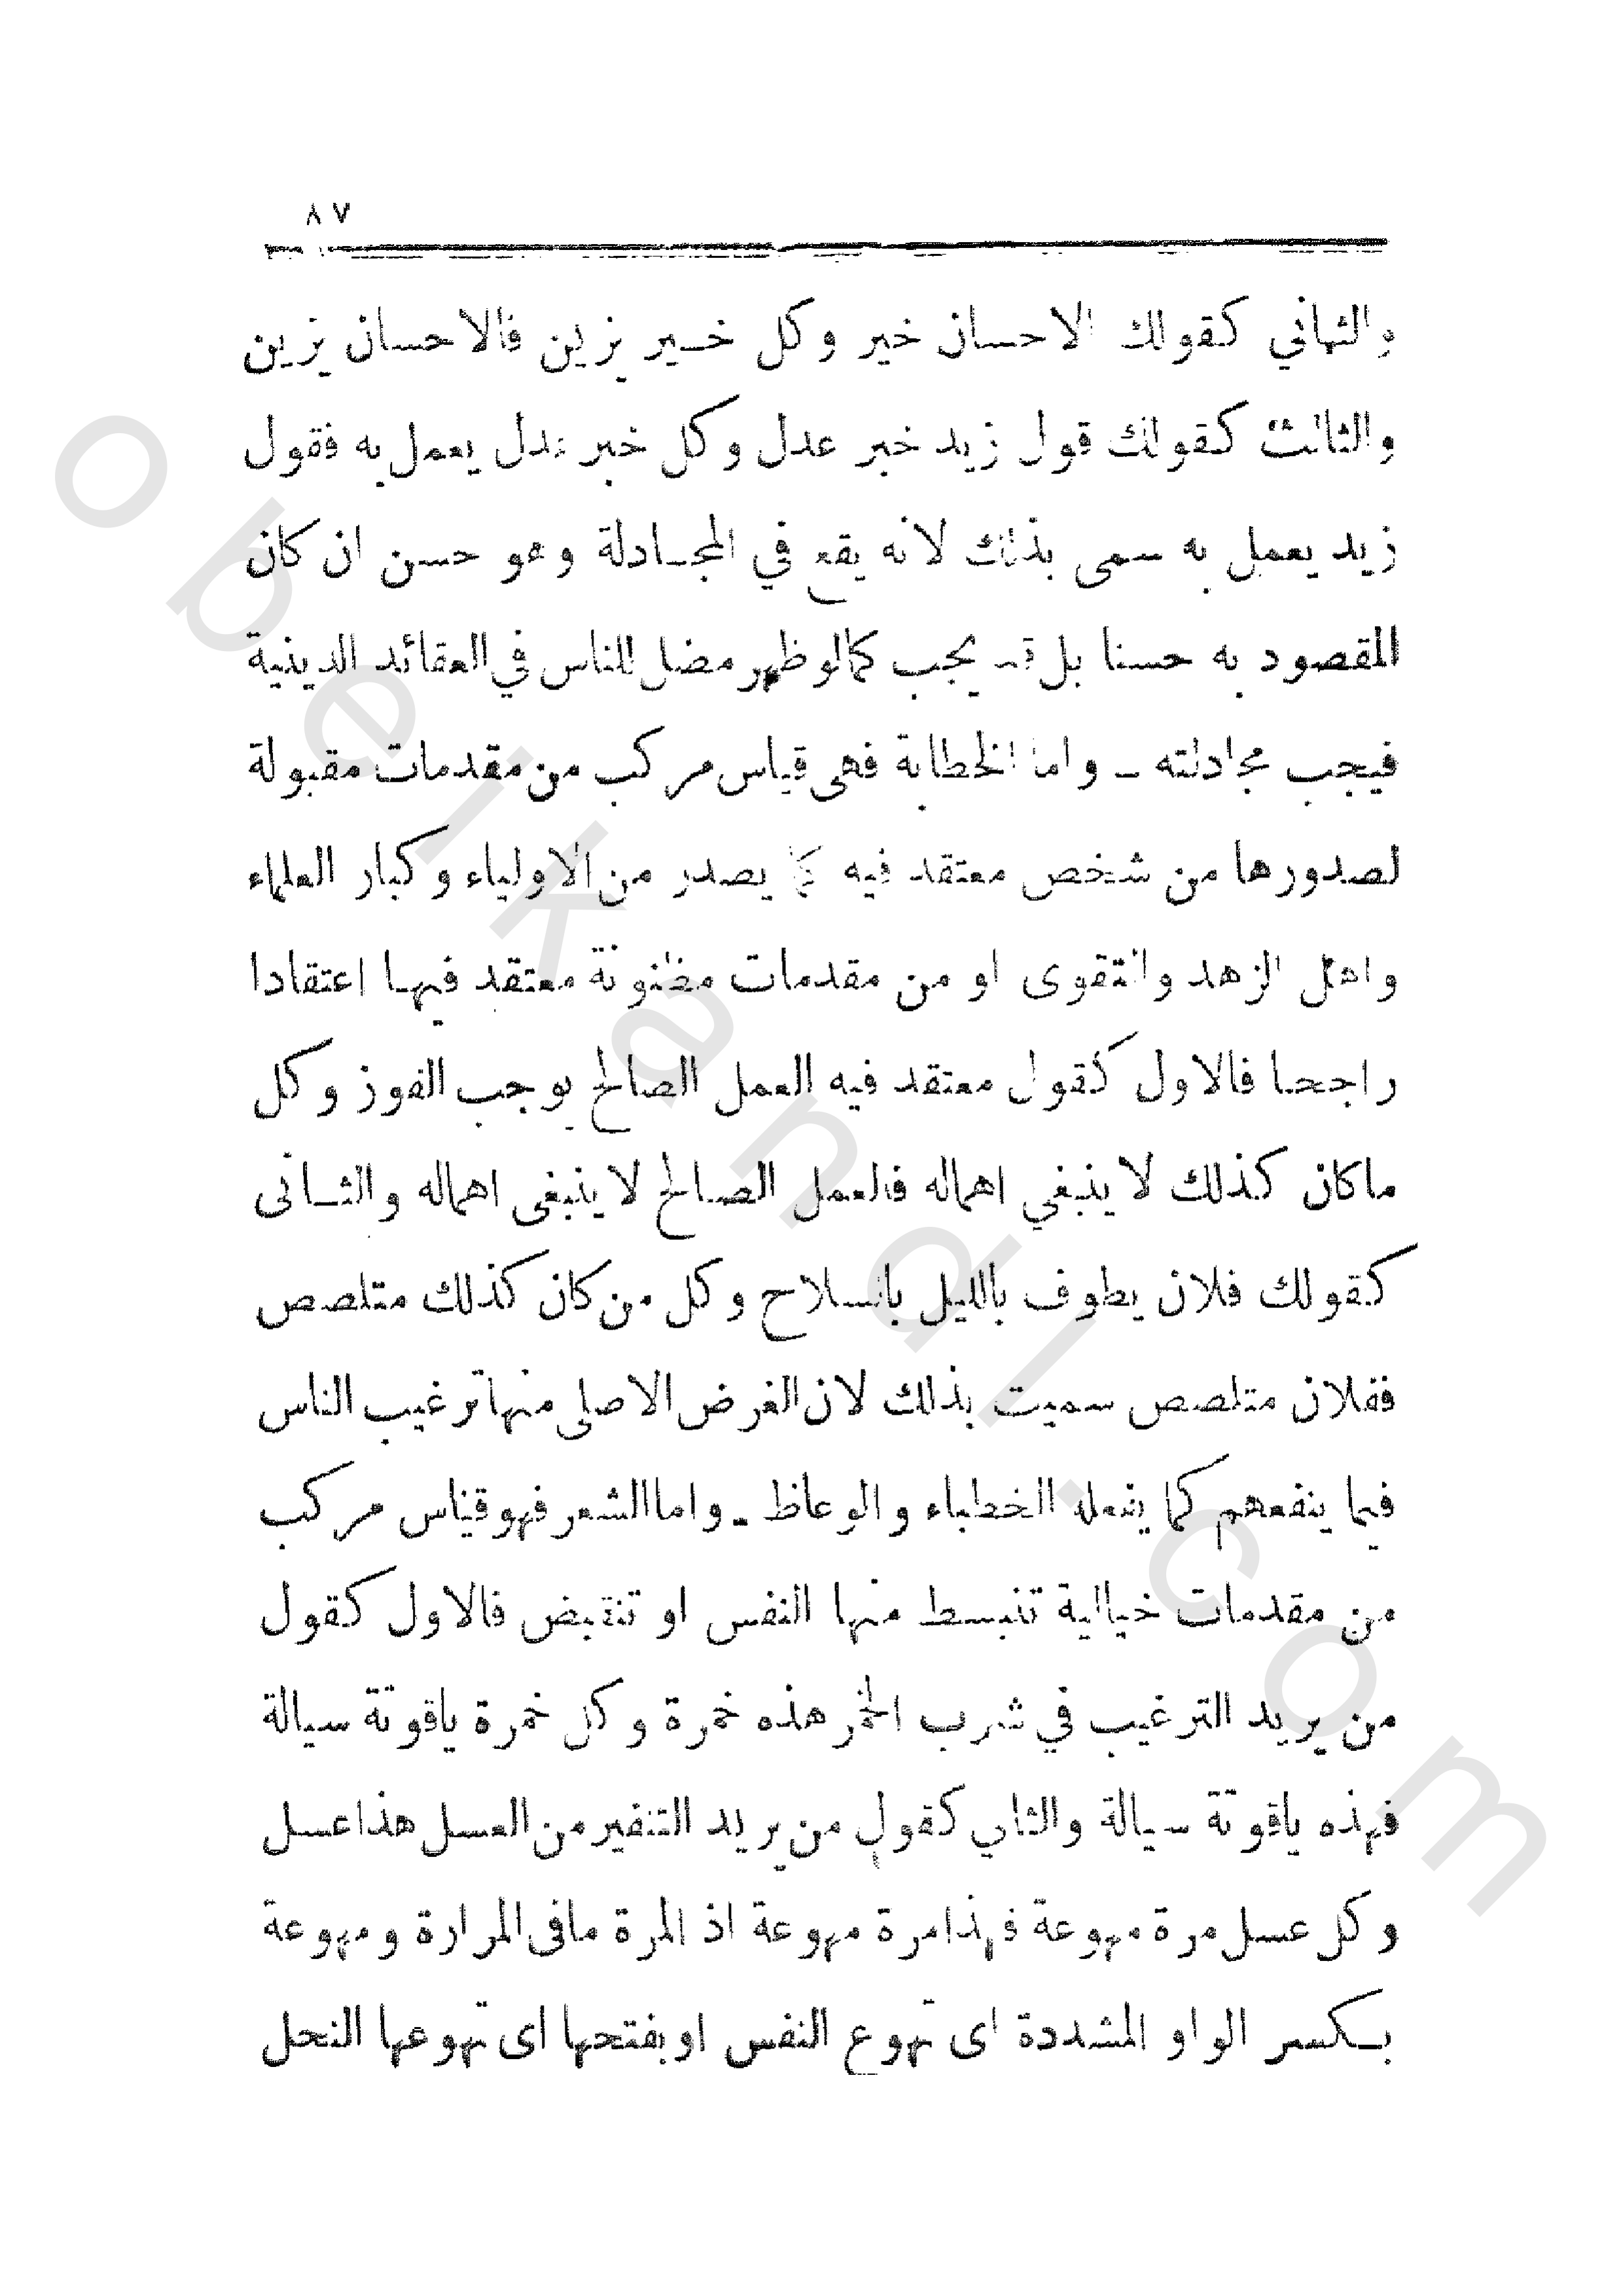 ٨٧
والثاني كقولك الاحسان خير وكل خير يزين فالاحسان يزين
والثالث كقولك قول زيد خبر عدل وكل خبر عدل يعمل به فقول
زيد يعمل به سمى بذلك لانه يقع في المجادلة وهو حسن ان كان
المقصود به حسنا بل قد يجب كمالو ظهر مضل للناس في العقائد الدينية
فيجب مجادلته ــ واما الخطابة فهى قياس مركب من مقدمات مقبولة
لصدورها من شخص معتقد فيه كما يصدر من الاولياء وكبار العلماء
واهل الزهد والتقوى او من مقدمات مظنونة معتقد فيها اعتقادا
راجحا فالاول كقول معتقد فيه العمل الصالح يوجب الفوز وكل
ماكان كذلك لا ينبغي اهماله فالعمل الصالح لا ينبغى اهماله والثانى
كقولك فلان يطوف بالليل بالسلاح وكل من كان كذلك متلصص
ففلان متلصص سميت بذلك لان الغرض الاصلى منها ترغيب الناس
فيما ينفعهم كما يفعله الخطباء والوعاظ ـ واما الشعر فهو قياس مركب
من مقدمات خيالية تنبسط منها النفس او تنقبض فالاول كقول
من يريد الترغيب في شرب الخمر هذه خمرة وكل خمرة ياقوتة سيالة
فهذه ياقوتة سيالة والثاني كقول من يريد التنفير من العسل هذا عسل
وكل عسل مرة مهوعة فهذا مرة مهوعة اذ المرة مافى المرارة ومهوعة
بكسر الواو المشددة اى تهوع النفس او بفتحها اى تهوعها النحل
obeikandl.com